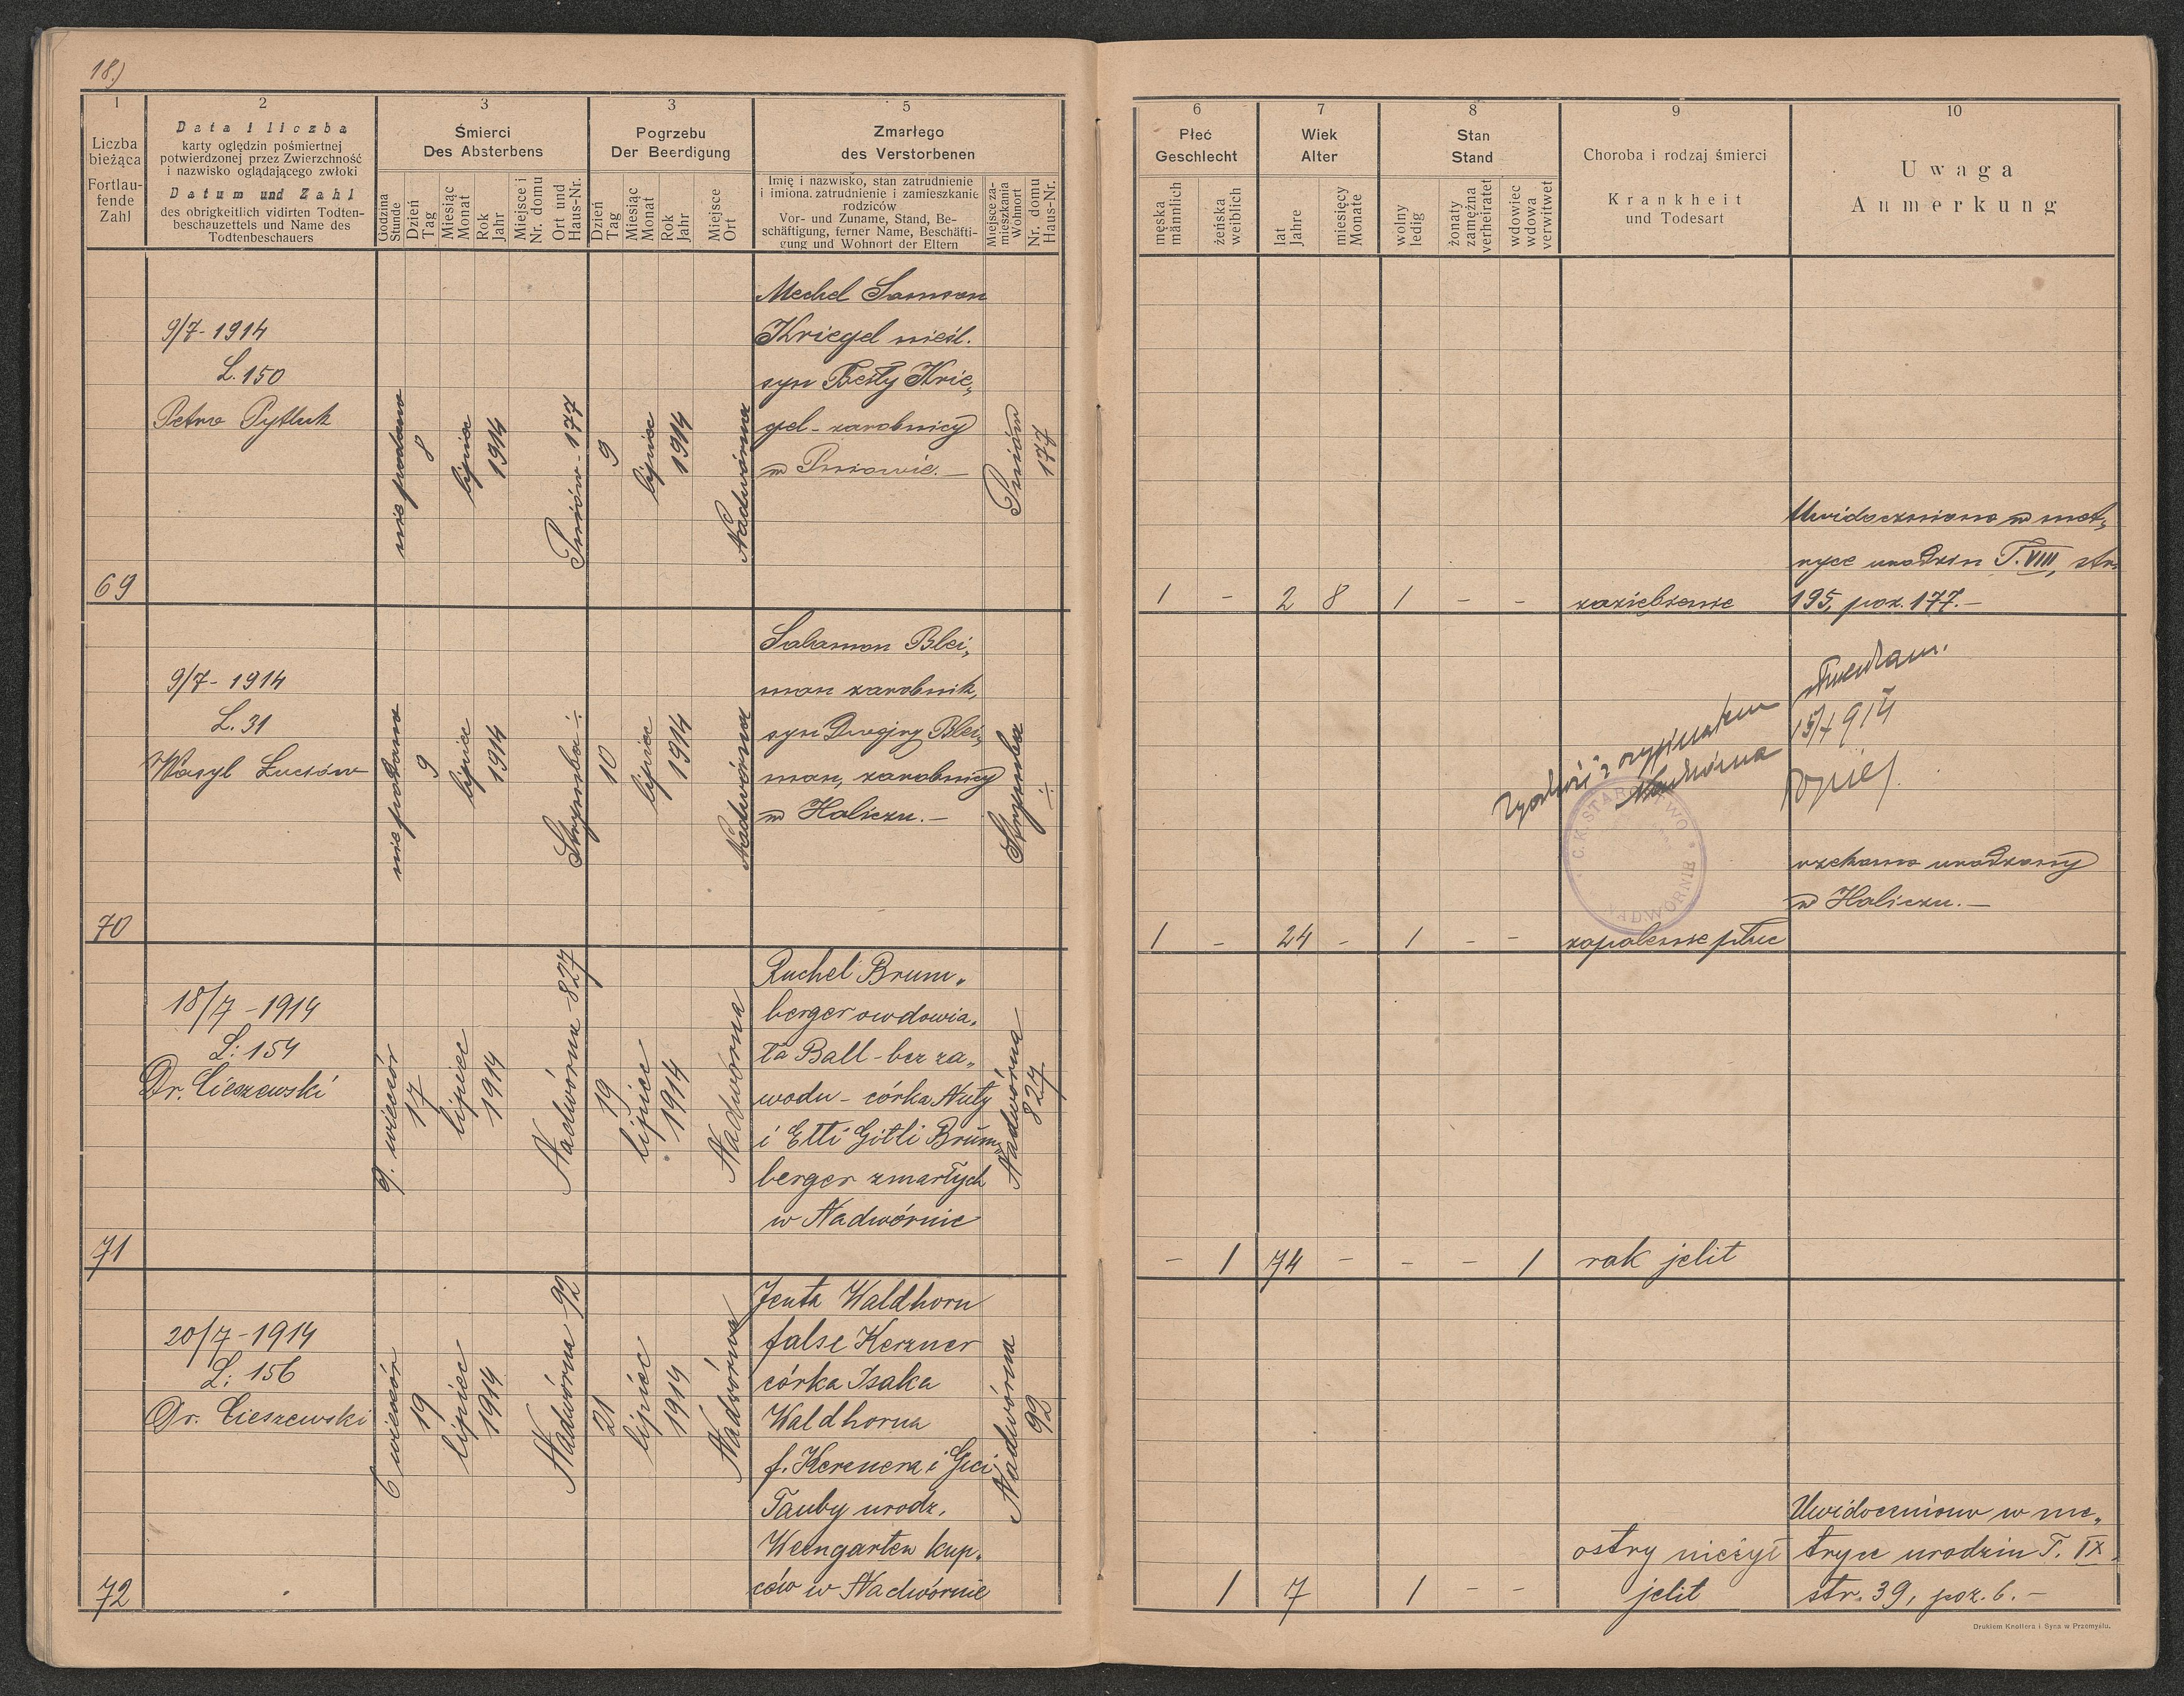 18.)
1
Liczba
bieżąca
Fortlau-
fende
Zahl
2
Data i liczba
karty oględzin pośmiertnej
potwierdzonej przez Zwierzchność
i nazwisko oglądającego zwłoki
Datum und Zahl
des obrigkeitlich vidirten Todten-
beschauzettels und Name des
Todtenbeschauers
3
Śmierci
Des Absterbens
Godzina
Stunde
Dzień
Tag
Miesiąc
Monat
Rok
Jahr
Miejsce i
Nr. domu
Ort und
Haus-Nr.
3
Pogrzebu
Der Beerdigung
Dzień
Tag
Miesiąc
Monat
Rok
Jahr
Miejsce
Ort
5
Zmarłego
des Verstorbenen
Imię i nazwisko, stan zatrudnienie
i imiona. zatrudnienie i zamieszkanie
rodziców
Vor- und Zuname, Stand, Be-
schäftigung, ferner Name, Beschäfti-
gung und Wohnort der Eltern
Miejsce za-
mieszkania
Wohnort
Nr. domu
Haus-Nr.
6
Płeć
Geschlecht
męska
männlich
żeńska
weiblich
7
Wiek
Alter
lat
Jahre
miesięcy
Monate
8
Stan
Stand
wolny
ledig
żonaty
zamężna
verheiratet
wdowiec
wdowa
verwitwet
9
Choroba i rodzaj śmierci
Krankheit
und Todesart
10
Uwaga
Anmerkung
69
9/7 - 1914
L. 150
Petro Pytluk
nie podano
8
lipiec
1914
Pniów - 177
9
lipiec
1914
Nadwórna
Mechel Samson
Kriegel nieśl.
syn Beily Krie„
gel - zarobnicy
w Pniowie. -
Pniów
177
1 - 2 8 1 - -
zaziębienie
Uwidoczniono w met„
ryce urodzin T. VIII, str.
195, poz. 177. -
70
9/7 - 1914
L. 31
Wasyl Łuciów
nie podano
9
lipiec
1914
Strymba ÷
10
lipiec
1914
Nadwórna
Salamon Blei„
man zarobnik,
syn Dwojry Blei„
man, zarobnicy
w Haliczu. -
Strymba
÷
1 - 24 - 1 - -
zapalenie płuc
Zgodność z oryginałem
stwierdzam.
Nadwórna
15/7 914
C. K. STAROSTWO
NADWÓRNIE
rzekomo urodzony
w Haliczu. -
71
18/7 - 1914
L: 154
Dr. Cieszewski
9. wieczór
17
lipiec
1914
Nadwórna 827
19
lipiec
1914
Nadwórna
Ruchel Brum„
berger owdowia„
ła Ball - bez za„
wodu - córka Nuty
i Etti Gitli Brum„
berger zmarłych
w Nadwórnie
Nadwórna
827
- 1 74 - - - 1
rak jelit
72
20/7 - 1914
L: 156
Dr. Cieszewski
6 wieczór
19
lipiec
1914
Nadwórna 92
21
lipiec
1914
Nadwórna
Jenta Waldhorn
false Kerzner
córka Isaka
Waldhorna
f. Kerznera i Gici
Tauby urodz.
Weingarten kup„
ców w Nadwórnie
Nadwórna
92
1 7 1 - -
ostry nieżyt
jelit
Uwidoczniono w me„
tryce urodzin T. IX.
str. 39, poz. 6. -
Drukiem Knollera i Syna w Przemyślu.